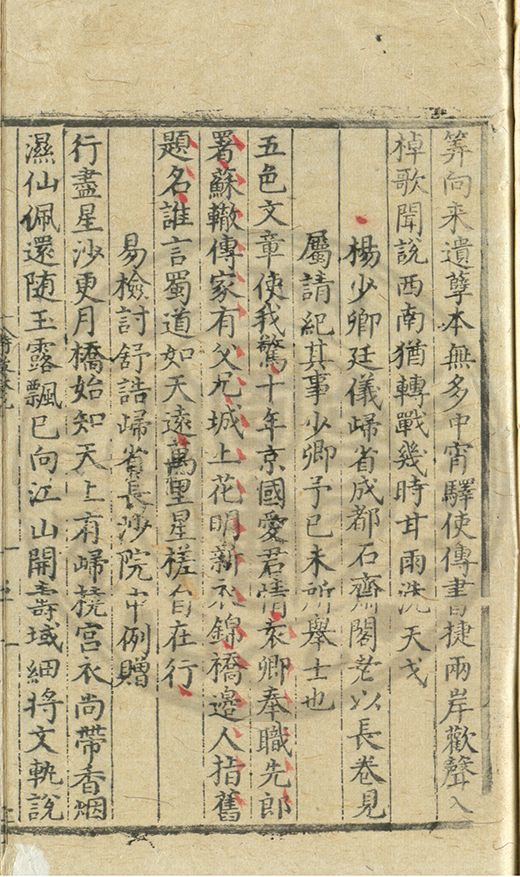 筭向来遺孽本無多中宵驛使傳書捷兩岸歡聲入
棹歌聞說西南猶轉戰幾時甘雨洗天戈
楊少卿廷儀歸省成都石齋閣老以長卷見
屬請紀其事少卿予己未所舉士也
五色文章使我驚十年京國愛君情亥卿奉職先郎
署蘇轍傳家有父兄城上花明新衣錦橋邊人指舊
題名誰言蜀道如天遠萬里星槎自在行
易檢討舒誥歸省長沙院中例贈
行盡星沙更月橋始知天上有歸橈宮衣尚帶香烟
濕仙佩還随玉露飄已向江山開壽域細將文軌說